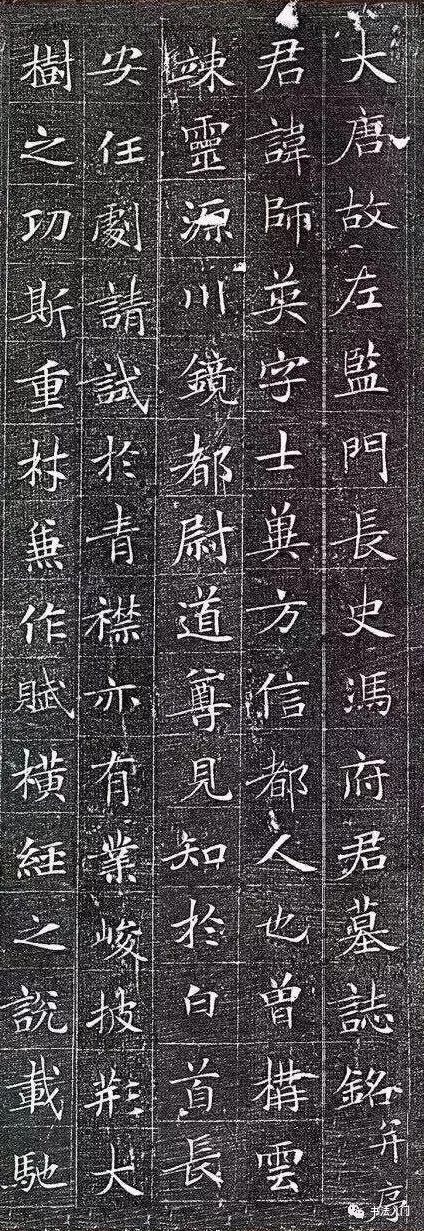 大唐故左監門長史馮府君墓誌銘并序
君諱師英字士兾方信都人也曾構雲
竦靈源川鏡都尉道尊見知於白首長
安任劇請試於青襟亦有業峻披荊大
樹之功斯重材兼作賦橫經之說載馳
书法入门